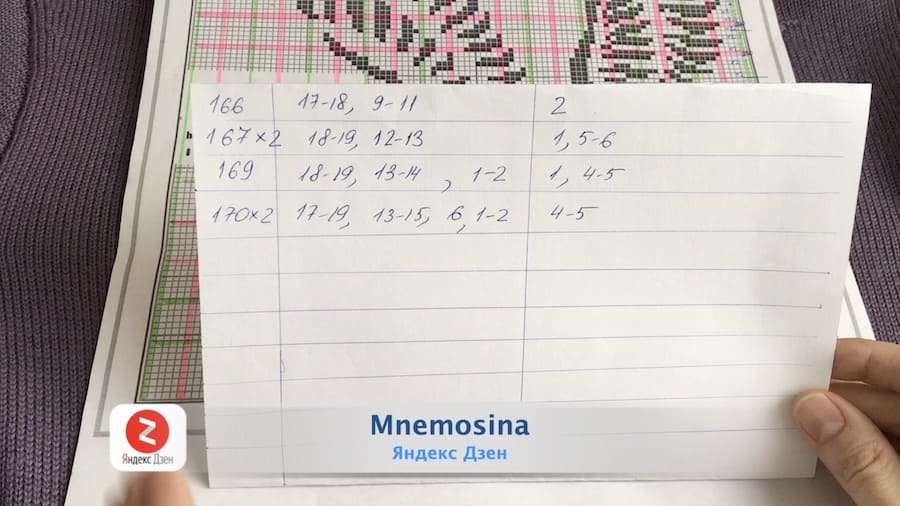 166 17-18, 9-11 2
167×2 18-19, 12-13 1, 5-6
169 18-19, 13-14 , 1-2 1, 4-5
170×2 17-19, 13-15, 6, 1-2 4-5
Mnemosina
Яндекс Дзен
Яндекс Дзен